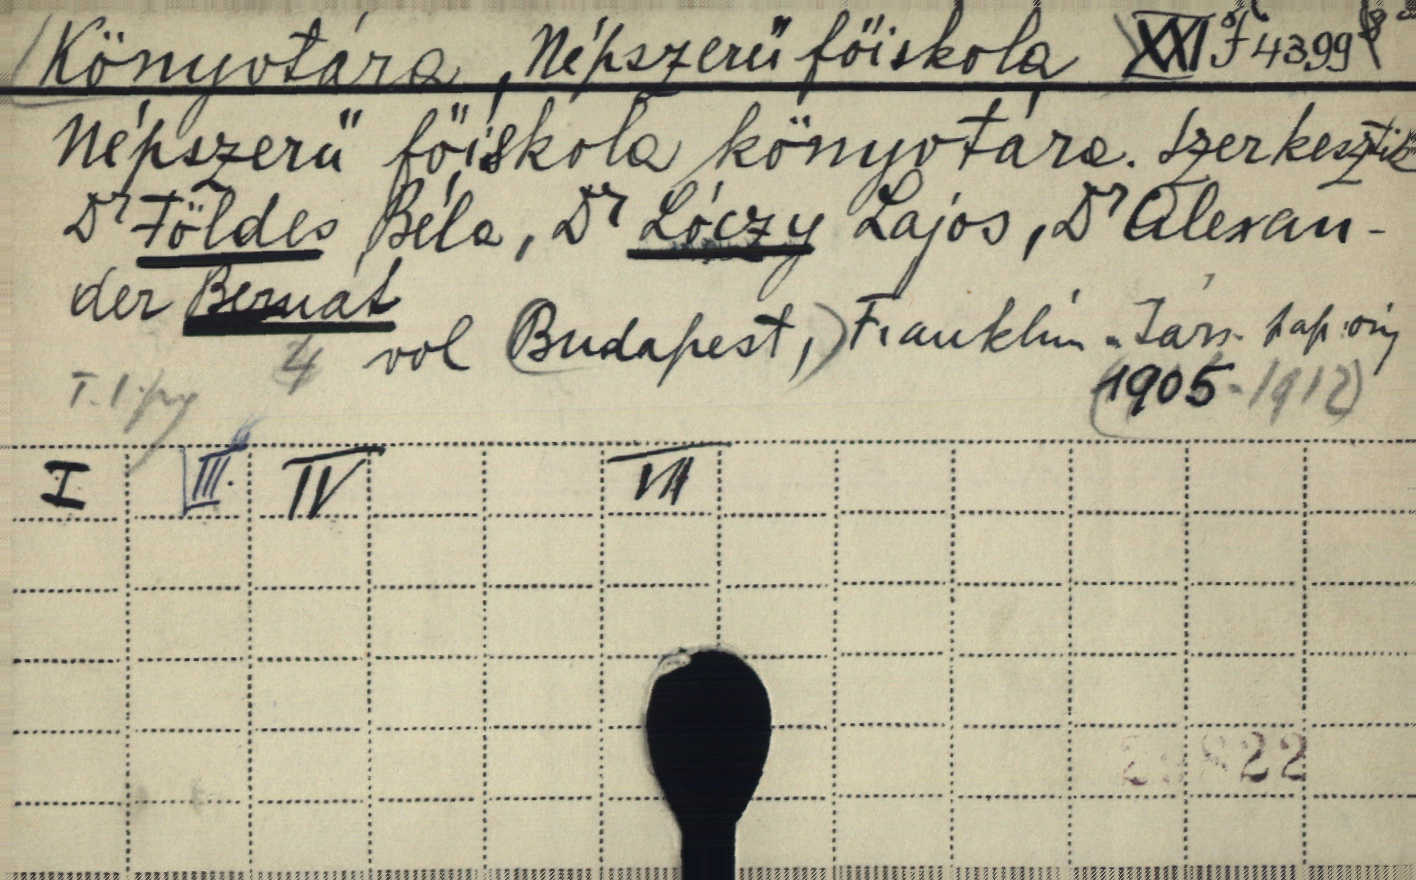 Könyvtára, Népszerű főiskola XXI f 4399
Népszerű főiskola könyvtára. Szerkesztik
Dr Földes Béla, Dr Lóczy Lajos, Dr Alexan-
der Bernát
4 vol Budapest, Franklin-Társ.
(1905-1912)
I III. IV VII
22